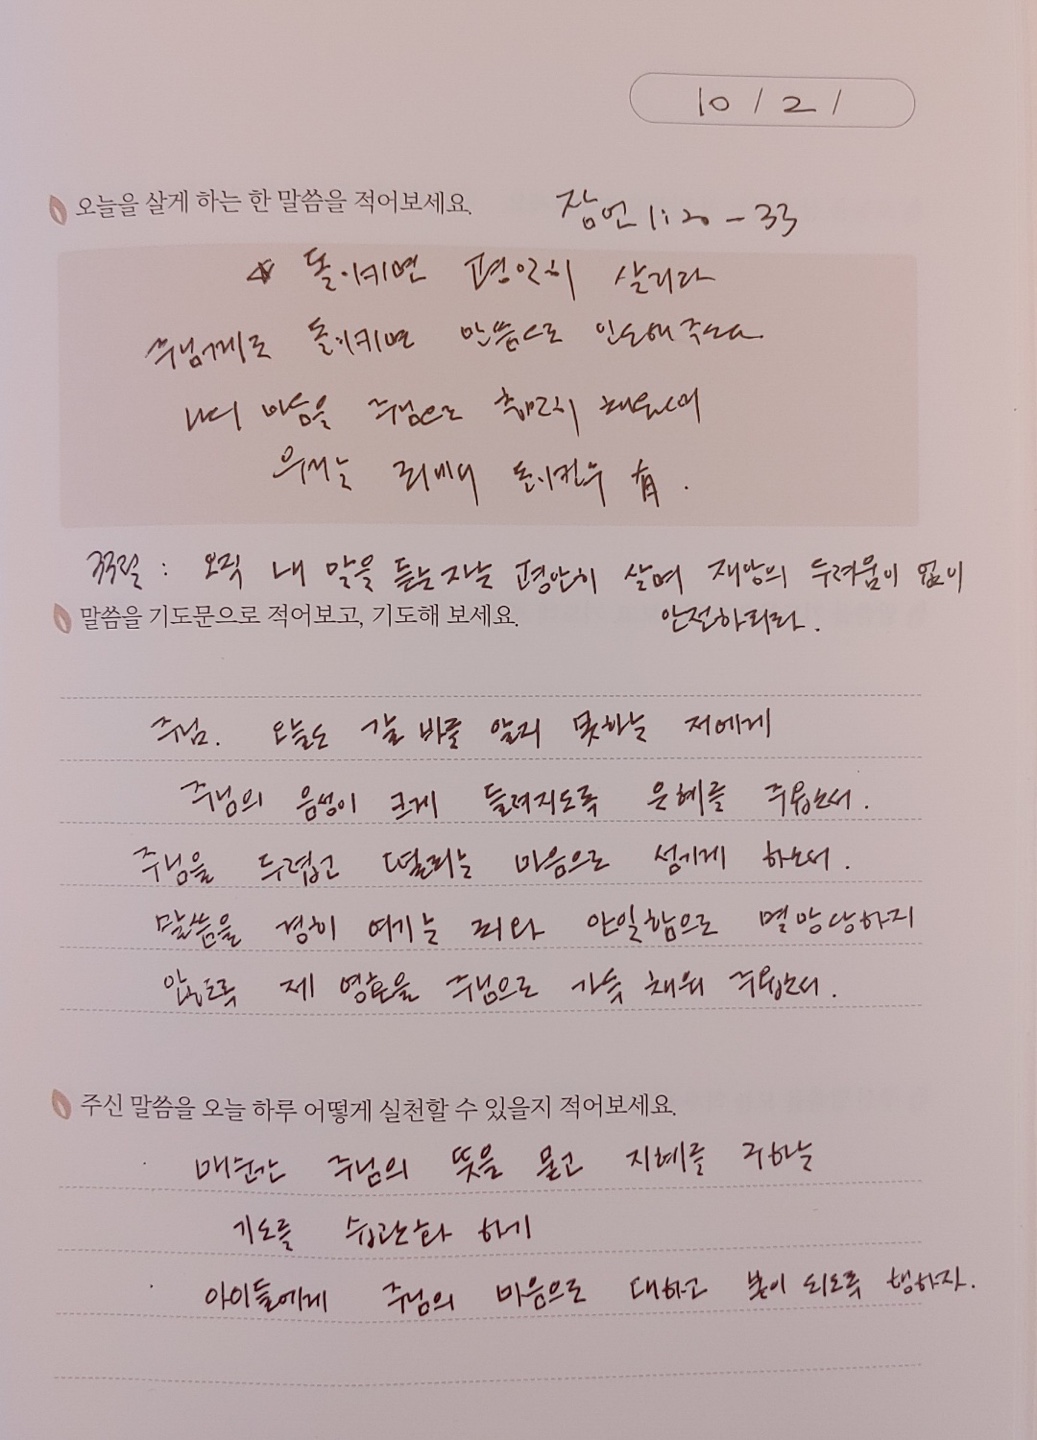 10 / 21
오늘을 살게 하는 한 말씀을 적어보세요. 잠언 1:20-33
☆ 돌이키면 평안히 살리라
주님께로 돌이키면 만족으로 인도해주소서
나의 마음을 주님으로 충만히 채우시며
우리는 돌이킨후 有.
33절 : 오직 내 말을 듣는 자는 평안히 살며 재앙의 두려움이 없이
안전하리라.
말씀을 기도문으로 적어보고, 기도해 보세요.
주님. 오늘도 갈 바를 알지 못하는 저에게
주님의 음성이 크게 들려지도록 은혜를 주옵소서.
주님을 두렵고 떨리는 마음으로 섬기게 하소서.
말씀을 경히 여기는 죄와 안일함으로 멸망당하지
않도록 제 영혼을 주님으로 가득 채워 주옵소서.
주신 말씀을 오늘 하루 어떻게 실천할 수 있을지 적어보세요.
· 매순간 주님의 뜻을 묻고 지혜를 구하는
기도를 습관화 하기
· 아이들에게 주님의 마음으로 대하고 본이 되도록 행하자.